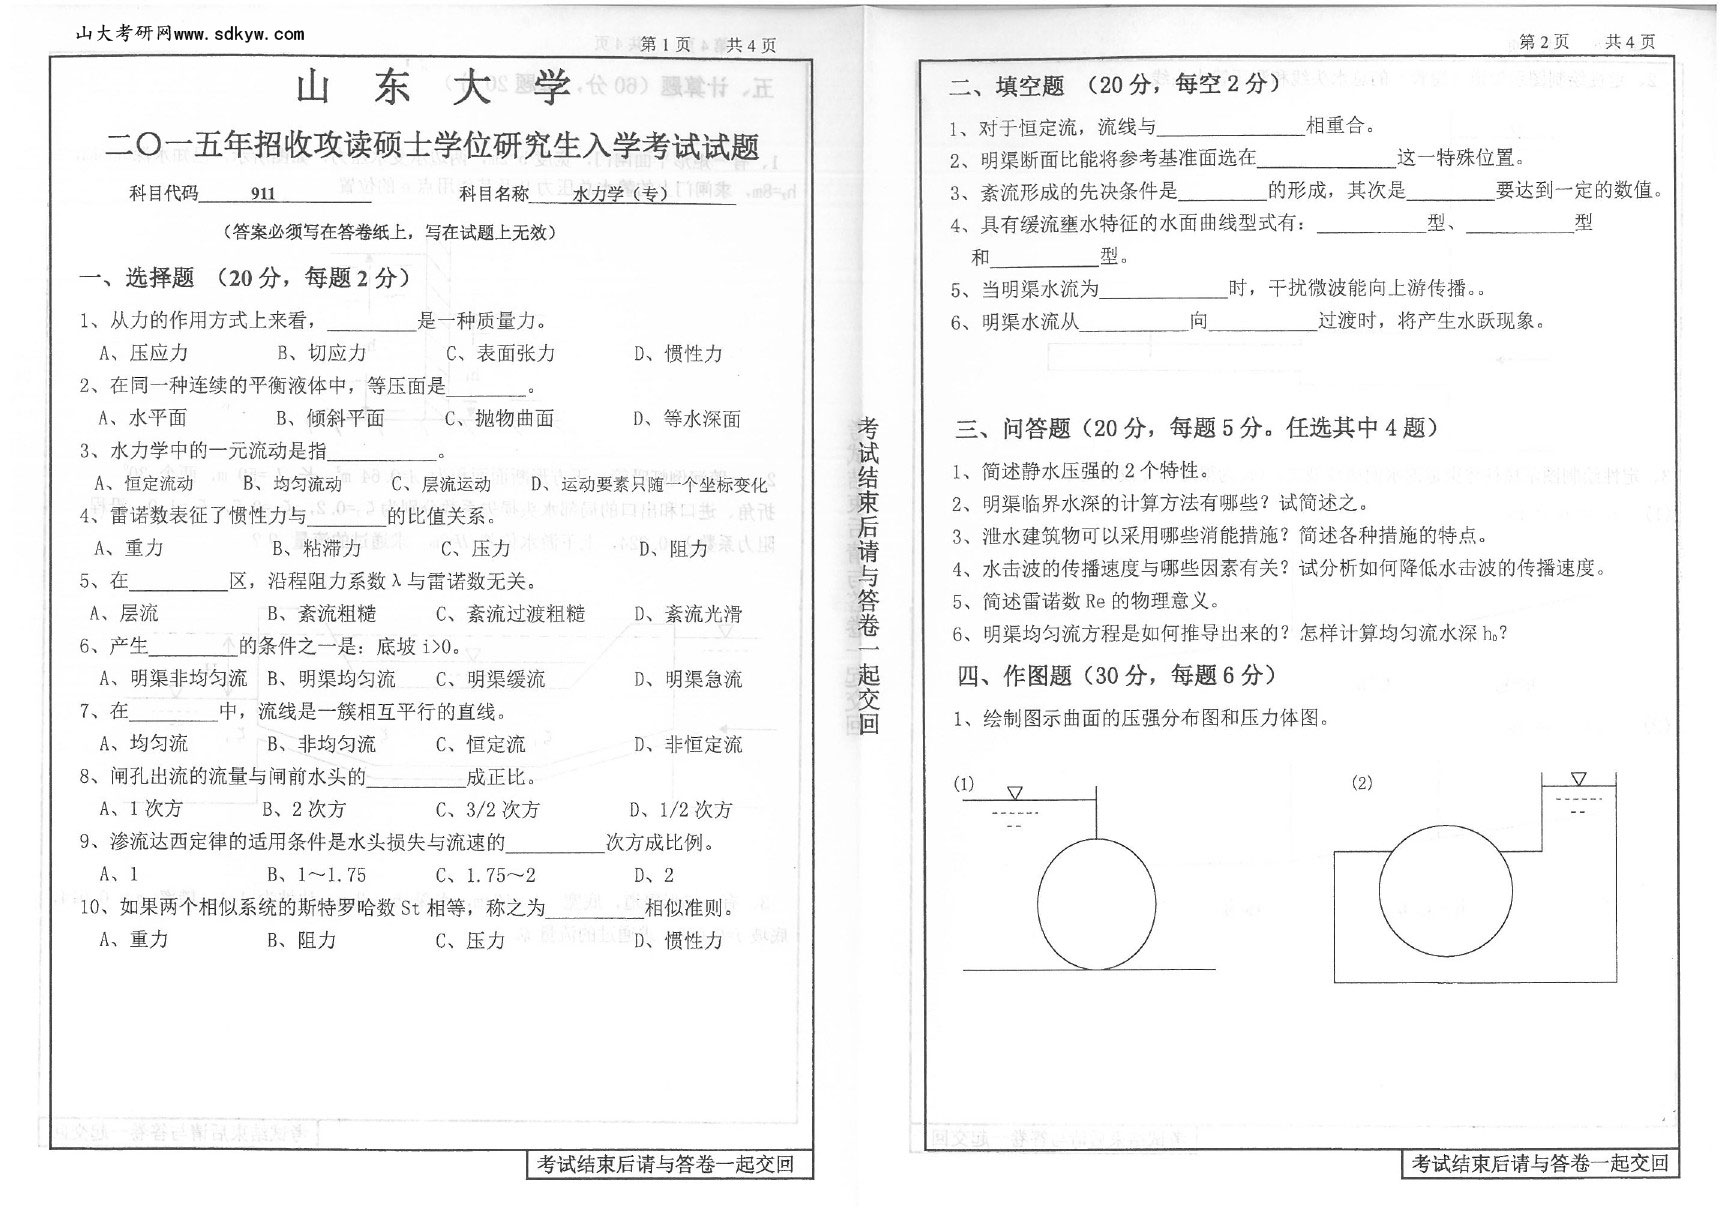 山大考研网www.sdkyw.com
第1页 共4页
山 东 大 学
二〇一五年招收攻读硕士学位研究生入学考试试题
科目代码 911 科目名称 水力学（专）
（答案必须写在答卷纸上，写在试题上无效）
一、选择题 （20分，每题2分）
1、从力的作用方式上来看，________是一种质量力。
A、压应力 B、切应力 C、表面张力 D、惯性力
2、在同一种连续的平衡液体中，等压面是________。
A、水平面 B、倾斜平面 C、抛物曲面 D、等水深面
3、水力学中的一元流动是指__________。
A、恒定流动 B、均匀流动 C、层流运动 D、运动要素只随一个坐标变化
4、雷诺数表征了惯性力与________的比值关系。
A、重力 B、粘滞力 C、压力 D、阻力
5、在_________区，沿程阻力系数λ与雷诺数无关。
A、层流 B、紊流粗糙 C、紊流过渡粗糙 D、紊流光滑
6、产生_________的条件之一是：底坡i>0。
A、明渠非均匀流 B、明渠均匀流 C、明渠缓流 D、明渠急流
7、在________中，流线是一簇相互平行的直线。
A、均匀流 B、非均匀流 C、恒定流 D、非恒定流
8、闸孔出流的流量与闸前水头的_________成正比。
A、1次方 B、2次方 C、3/2次方 D、1/2次方
9、渗流达西定律的适用条件是水头损失与流速的_________次方成比例。
A、1 B、1～1.75 C、1.75～2 D、2
10、如果两个相似系统的斯特罗哈数St相等，称之为_________相似准则。
A、重力 B、阻力 C、压力 D、惯性力
考试结束后请与答卷一起交回
考试结束后请与答卷一起交回
第2页 共4页
二、填空题 （20分，每空2分）
1、对于恒定流，流线与______________相重合。
2、明渠断面比能将参考基准面选在_____________这一特殊位置。
3、紊流形成的先决条件是________的形成，其次是________要达到一定的数值。
4、具有缓流壅水特征的水面曲线型式有：__________型、__________型
和__________型。
5、当明渠水流为____________时，干扰微波能向上游传播。。
6、明渠水流从__________向__________过渡时，将产生水跃现象。
三、问答题（20分，每题5分。任选其中4题）
1、简述静水压强的2个特性。
2、明渠临界水深的计算方法有哪些？试简述之。
3、泄水建筑物可以采用哪些消能措施？简述各种措施的特点。
4、水击波的传播速度与哪些因素有关？试分析如何降低水击波的传播速度。
5、简述雷诺数Re的物理意义。
6、明渠均匀流方程是如何推导出来的？怎样计算均匀流水深h₀？
四、作图题（30分，每题6分）
1、绘制图示曲面的压强分布图和压力体图。
(1) (2)
考试结束后请与答卷一起交回